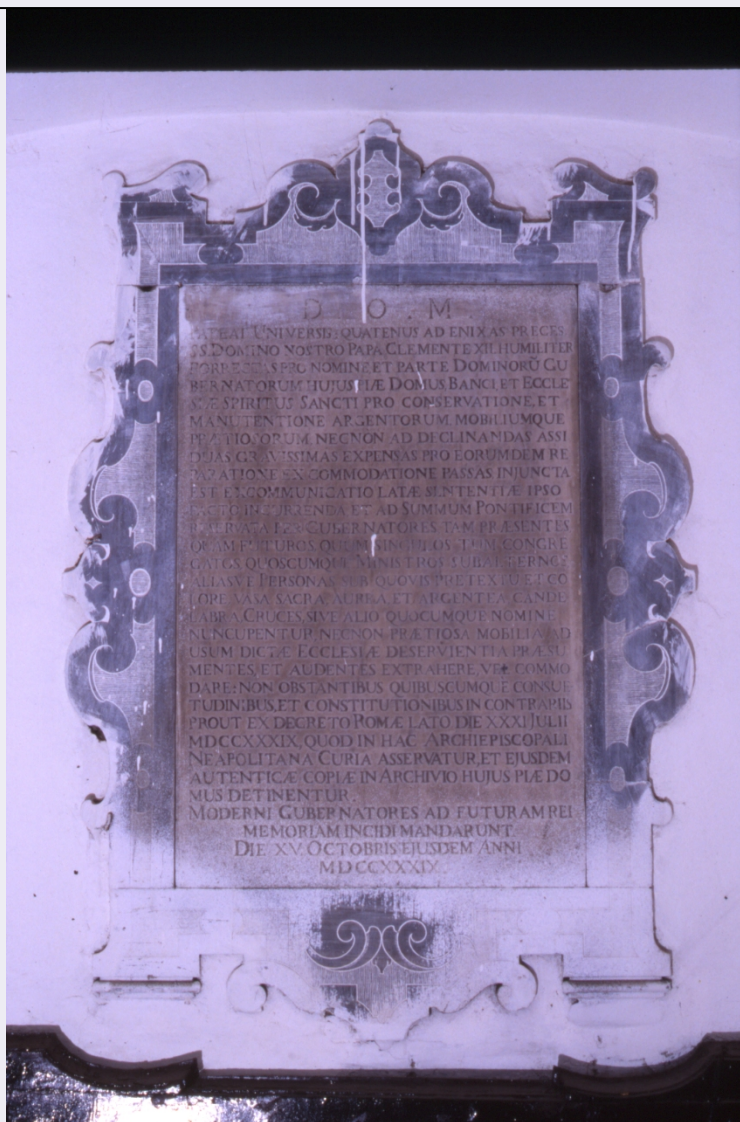 D. O. M.
PATEAT UNIVERSIS, QUATENUS AD ENIXAS PRECES
SS. DOMINO NOSTRO PAPA CLEMENTE XII. HUMILITER
PORRECTAS PRO NOMINE ET PARTE DOMINORŪ GU
BERNATORUM HUJUS PIÆ DOMUS BANCI, ET ECCLE
SIÆ SPIRITUS SANCTI PRO CONSERVATIONE, ET
MANUTENTIONE ARGENTORUM MOBILIUMQUE
PRÆTIOSORUM, NECNON AD DECLINANDAS ASSI
DUAS GRAVISSIMAS EXPENSAS PRO EORUMDEM RE
PARATIONE EX COMMODATIONE PASSAS INJUNCTA
EST EXCOMMUNICATIO LATÆ SENTENTIÆ IPSO
FACTO INCURRENDA ET AD SUMMUM PONTIFICEM
RESERVATA PER GUBERNATORES TAM PRÆSENTES
QUAM FUTUROS SINGULOS CONGRE
GATOS QUOSCUMQUE MINISTROS SUBALTERNOS
ALIASVE PERSONAS SUB QUOVIS PRETEXTU ET CO
LORE VASA SACRA, AUREA ET ARGENTEA, CANDE
LABRA, CRUCES, SIVE ALIO QUOCUMQUE NOMINE
NUNCUPENTUR, NECNON PRÆTIOSA MOBILIA AD
USUM DICTÆ ECCLESIÆ DESERVIENTIA PRÆSU
MENTES, ET AUDENTES EXTRAHERE, VEL COMMO
DARE: NON OBSTANTIBUS QUIBUSCUMQUE CONSUE
TUDINIBUS, ET CONSTITUTIONIBUS IN CONTRARIIS
PROUT EX DECRETO ROMÆ LATO DIE XXXI JULII
MDCCXXXIX, QUOD IN HAC ARCHIEPISCOPALI
NEAPOLITANA CURIA ASSERVATUR, ET EJUSDEM
AUTENTICÆ COPIÆ IN ARCHIVIO HUJUS PIÆ DO
MUS DETINENTUR.
MODERNI GUBERNATORES AD FUTURAM REI
MEMORIAM INCIDI MANDARUNT
DIE XV. OCTOBRIS EJUSDEM ANNI
MDCCXXXIX.